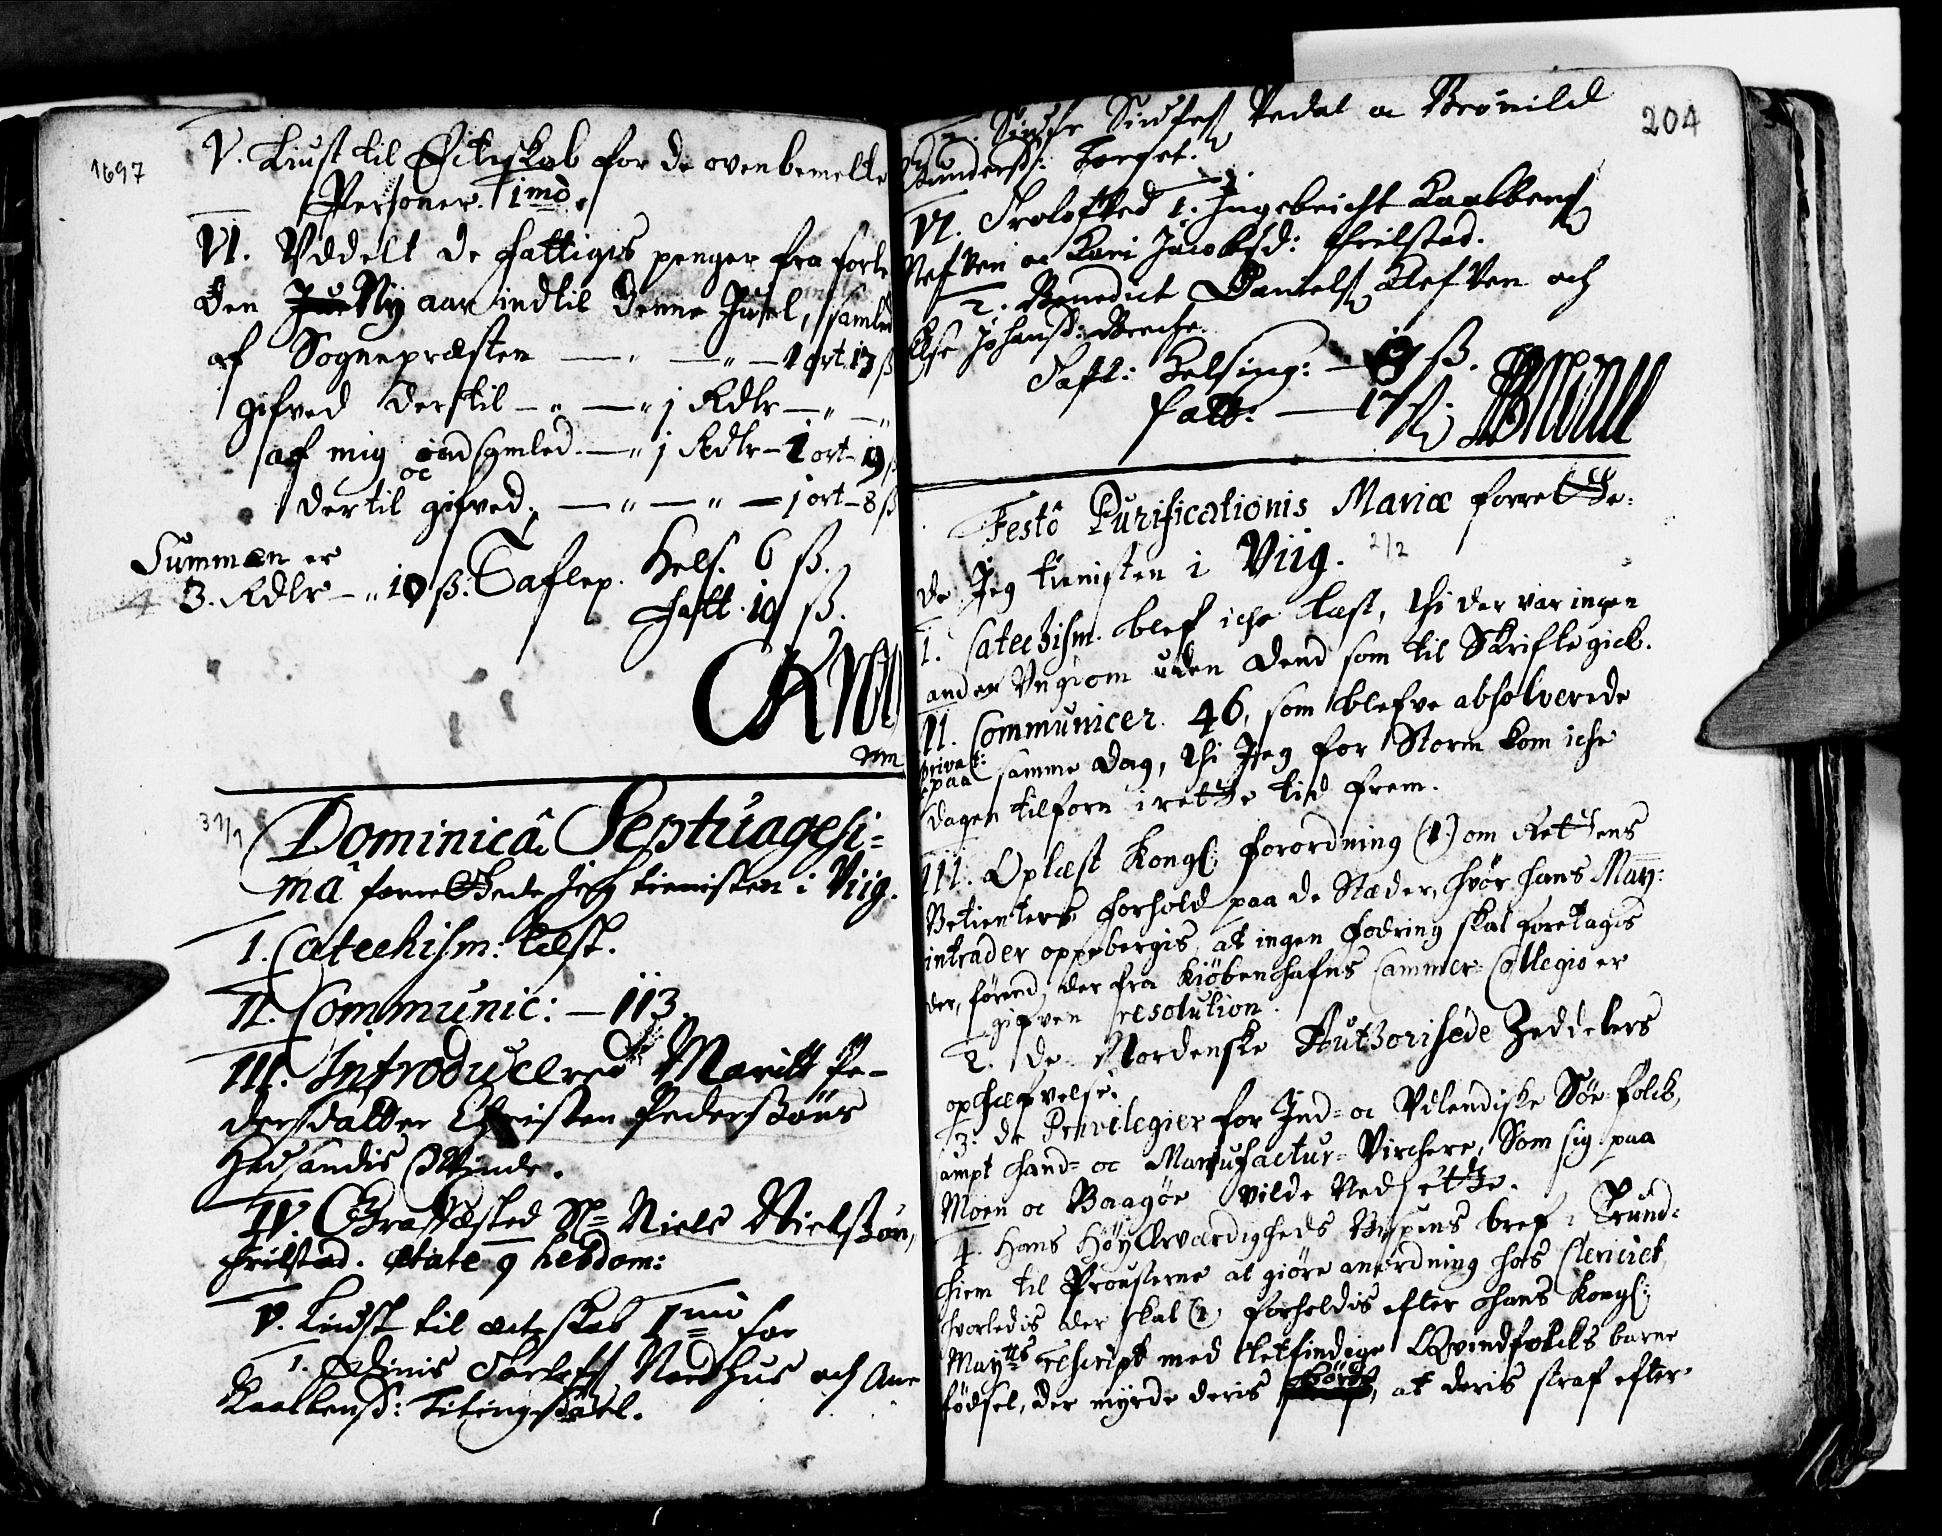 1697
V. Liust til Ecteskab for de ovenbemelte
Personer. 1mò.
VI. Uddelt de fattigis penger fra forle
den Ju Ny aar indtil denne Juel, samled
af Sognepræsten — " — " — 1 ort. 17 ß
gifved dertil — " — " 1 Rdlr — " — "
af mig indsamled — " 1 Rdlr — 1 ort — 19 ß
oc
dertil gifved. — " — " — 1 ort — 8 ß
Summæn er
3. Rdlr — " 10 ß. Taflep. Hels. 6 ß.
fatt. 10 ß.
31/1
Dominicâ Septuagesi=
mâ forrettede Jeg tienisten i Viig.
I. Catechism: læst.
II. Communic: — 113
III. Introducered Maritt Pe-
dersdatter Christen Pederssöns
Hædsandis Qvinde.
IV. Graffæsted Sl= Niels Nielssön,
Frilstad. ætate 9 hebdom:
V. Liust til ecteskab 1mò for
1. Dinis Nordhus och Ane
Raalkensd: Titingstad.
204
2. Siufr Siufs Vedal oc Brönild
Gundersd: Torget.
VI. Trolofved 1. Ingebricht Raalkens
Refven oc Kari Jacobsd: Frilstad.
2. Benedict Daniels Refven och
Else Johansd: Breche.
Tafl: Helsing: — ß.
fatt: — 17 ß.
Festô Purificationis Mariæ forrette=
de Jeg tienisten i Viig. 2/2
I. Catechism. blef iche læst, thi der var ingen
anden Ungdom uden dend som til Skrifte gick.
II. Communicer. 46, som blefve absolverede
privat:
paa samme dag, thi Jeg for Storm kom iche
dagen tilforn i rette tid frem.
III. Oplæst Kongl: forordning (1.) om Rettens
Betienters forhold paa de Stæder, hvor hans May:
intrader oppebergis, at ingen fodring skal foretagis
der, förend der fra Kiöbenhafns Cammer-Collegio er
gifven resolution.
2. de Nordenske Authorisede Zeddelers
ophæfvelse.
3. de Privilegier for Ind- oc Udlendiske Söe-folck,
ampt Hand- oc Manufactur-Virchere, Som sig paa
Moen oc Baagöe vilde Nedsette.
4. Hans HöyÆrværdigheds Bispens bref i Trund-
hiem til Prousterne at giöre anordning hos Clericiet,
hvorledis der skal (2) forholdis efter Hans Kongl:
Maytts rescript med letfindige Qvindfolcks barne
födsel, der myrde deris börn, at deris straf efter-